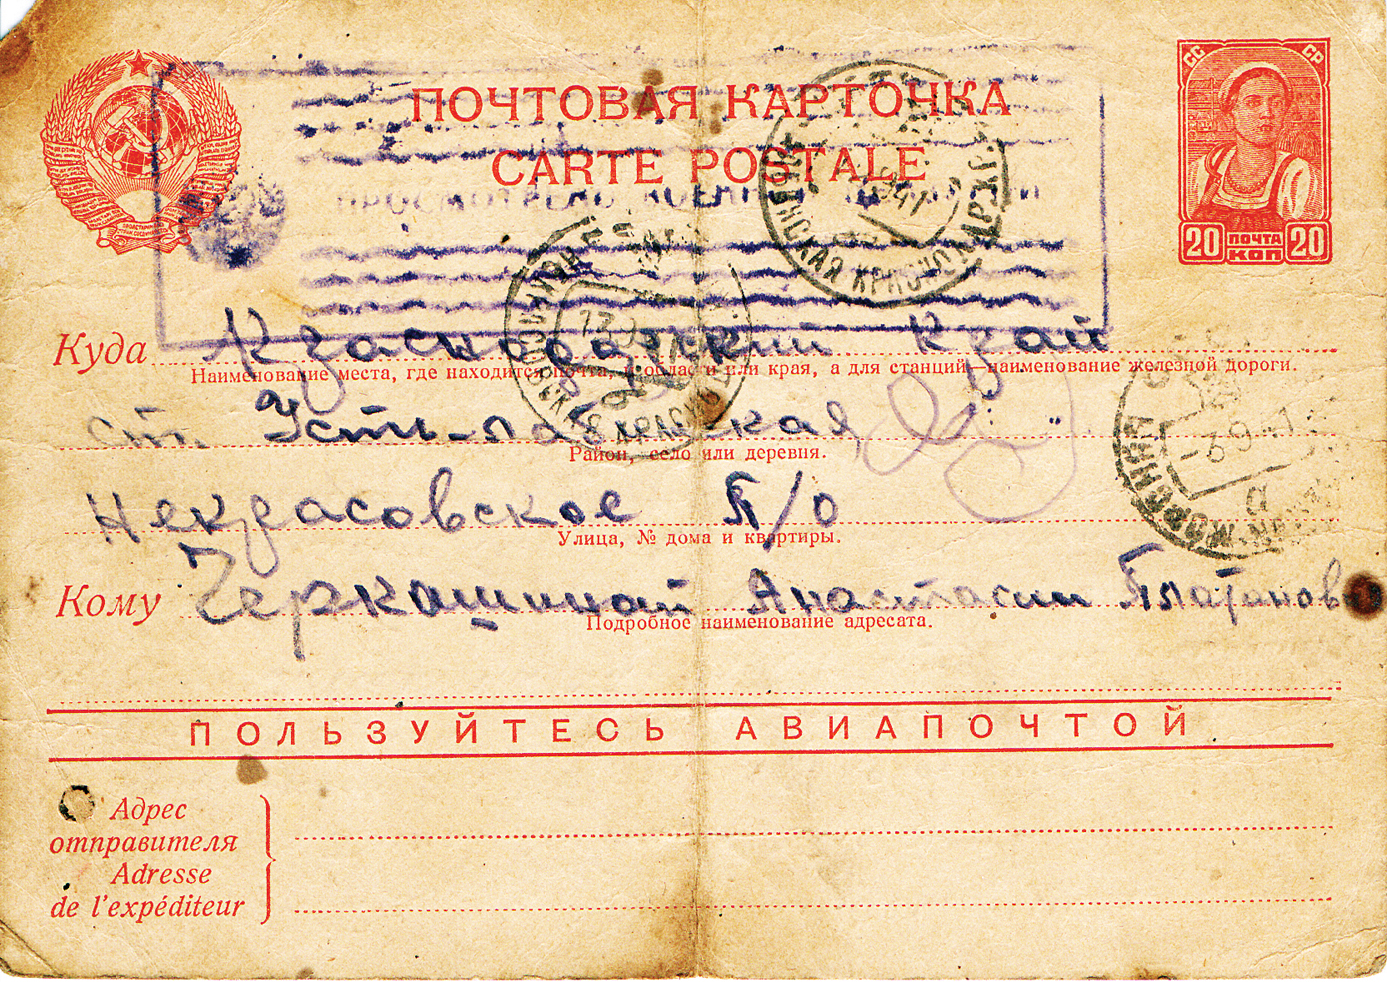 ПОЧТОВАЯ КАРТОЧКА
CARTE POSTALE
СС СР
20 ПОЧТА КОП 20
ПРОСМОТРЕНО ВОЕННОЙ
1941
Куда Краснодарский край
Наименование места, где находится почта, и области или края, а для станций—наименование железной дороги.
ст. Усть-лабинская
Район, село или деревня.
-3.9.41
Некрасовское п/о
Улица, № дома и квартиры.
Кому Черкашиной Анастасии Платонов
Подробное наименование адресата.
ПОЛЬЗУЙТЕСЬ АВИАПОЧТОЙ
Адрес
отправителя
Adresse
de l'expéditeur